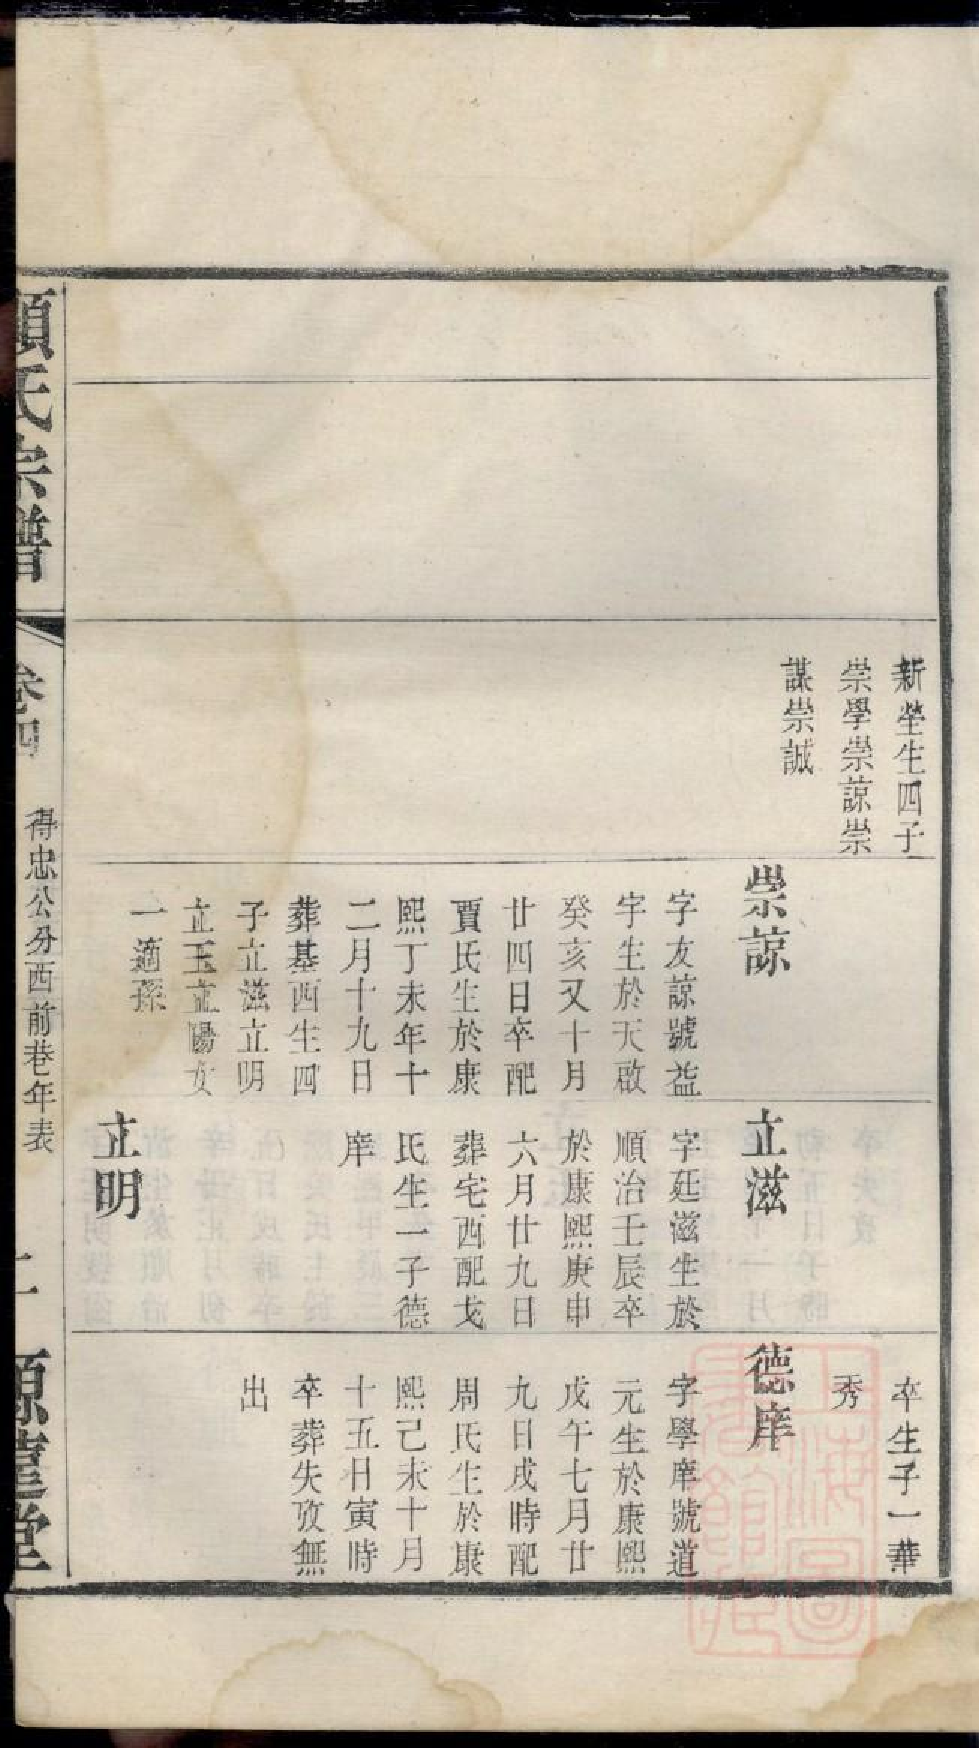 新塋生四子
崇學崇諒崇
謀崇誠
崇諒
字友諒號益
宇生於天啟
癸亥又十月
廿四日卒配
賈氏生於康
熙丁未年十
二月十九日
葬基西生四
子立滋立明
立玉立陽女
一適孫
立滋
字廷滋生於
順治壬辰卒
於康熙庚申
六月廿九日
葬宅西配戈
氏生一子德
庠
立明
卒生子一華
秀
德庠
字學庠號道
元生於康熙
戊午七月廿
九日戌時配
周氏生於康
熙己未十月
十五日寅時
卒葬失攷無
出
氏宗譜
卷四
得忠公分西前巷年表
堂
上海圖